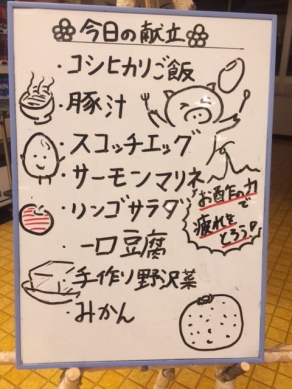 今日の献立
・コシヒカリご飯
・豚汁
・スコッチエッグ
・サーモンマリネ
・リンゴサラダ
・一口豆腐
・手作り野沢菜
・みかん
お酢の力で
疲れを
とろう!